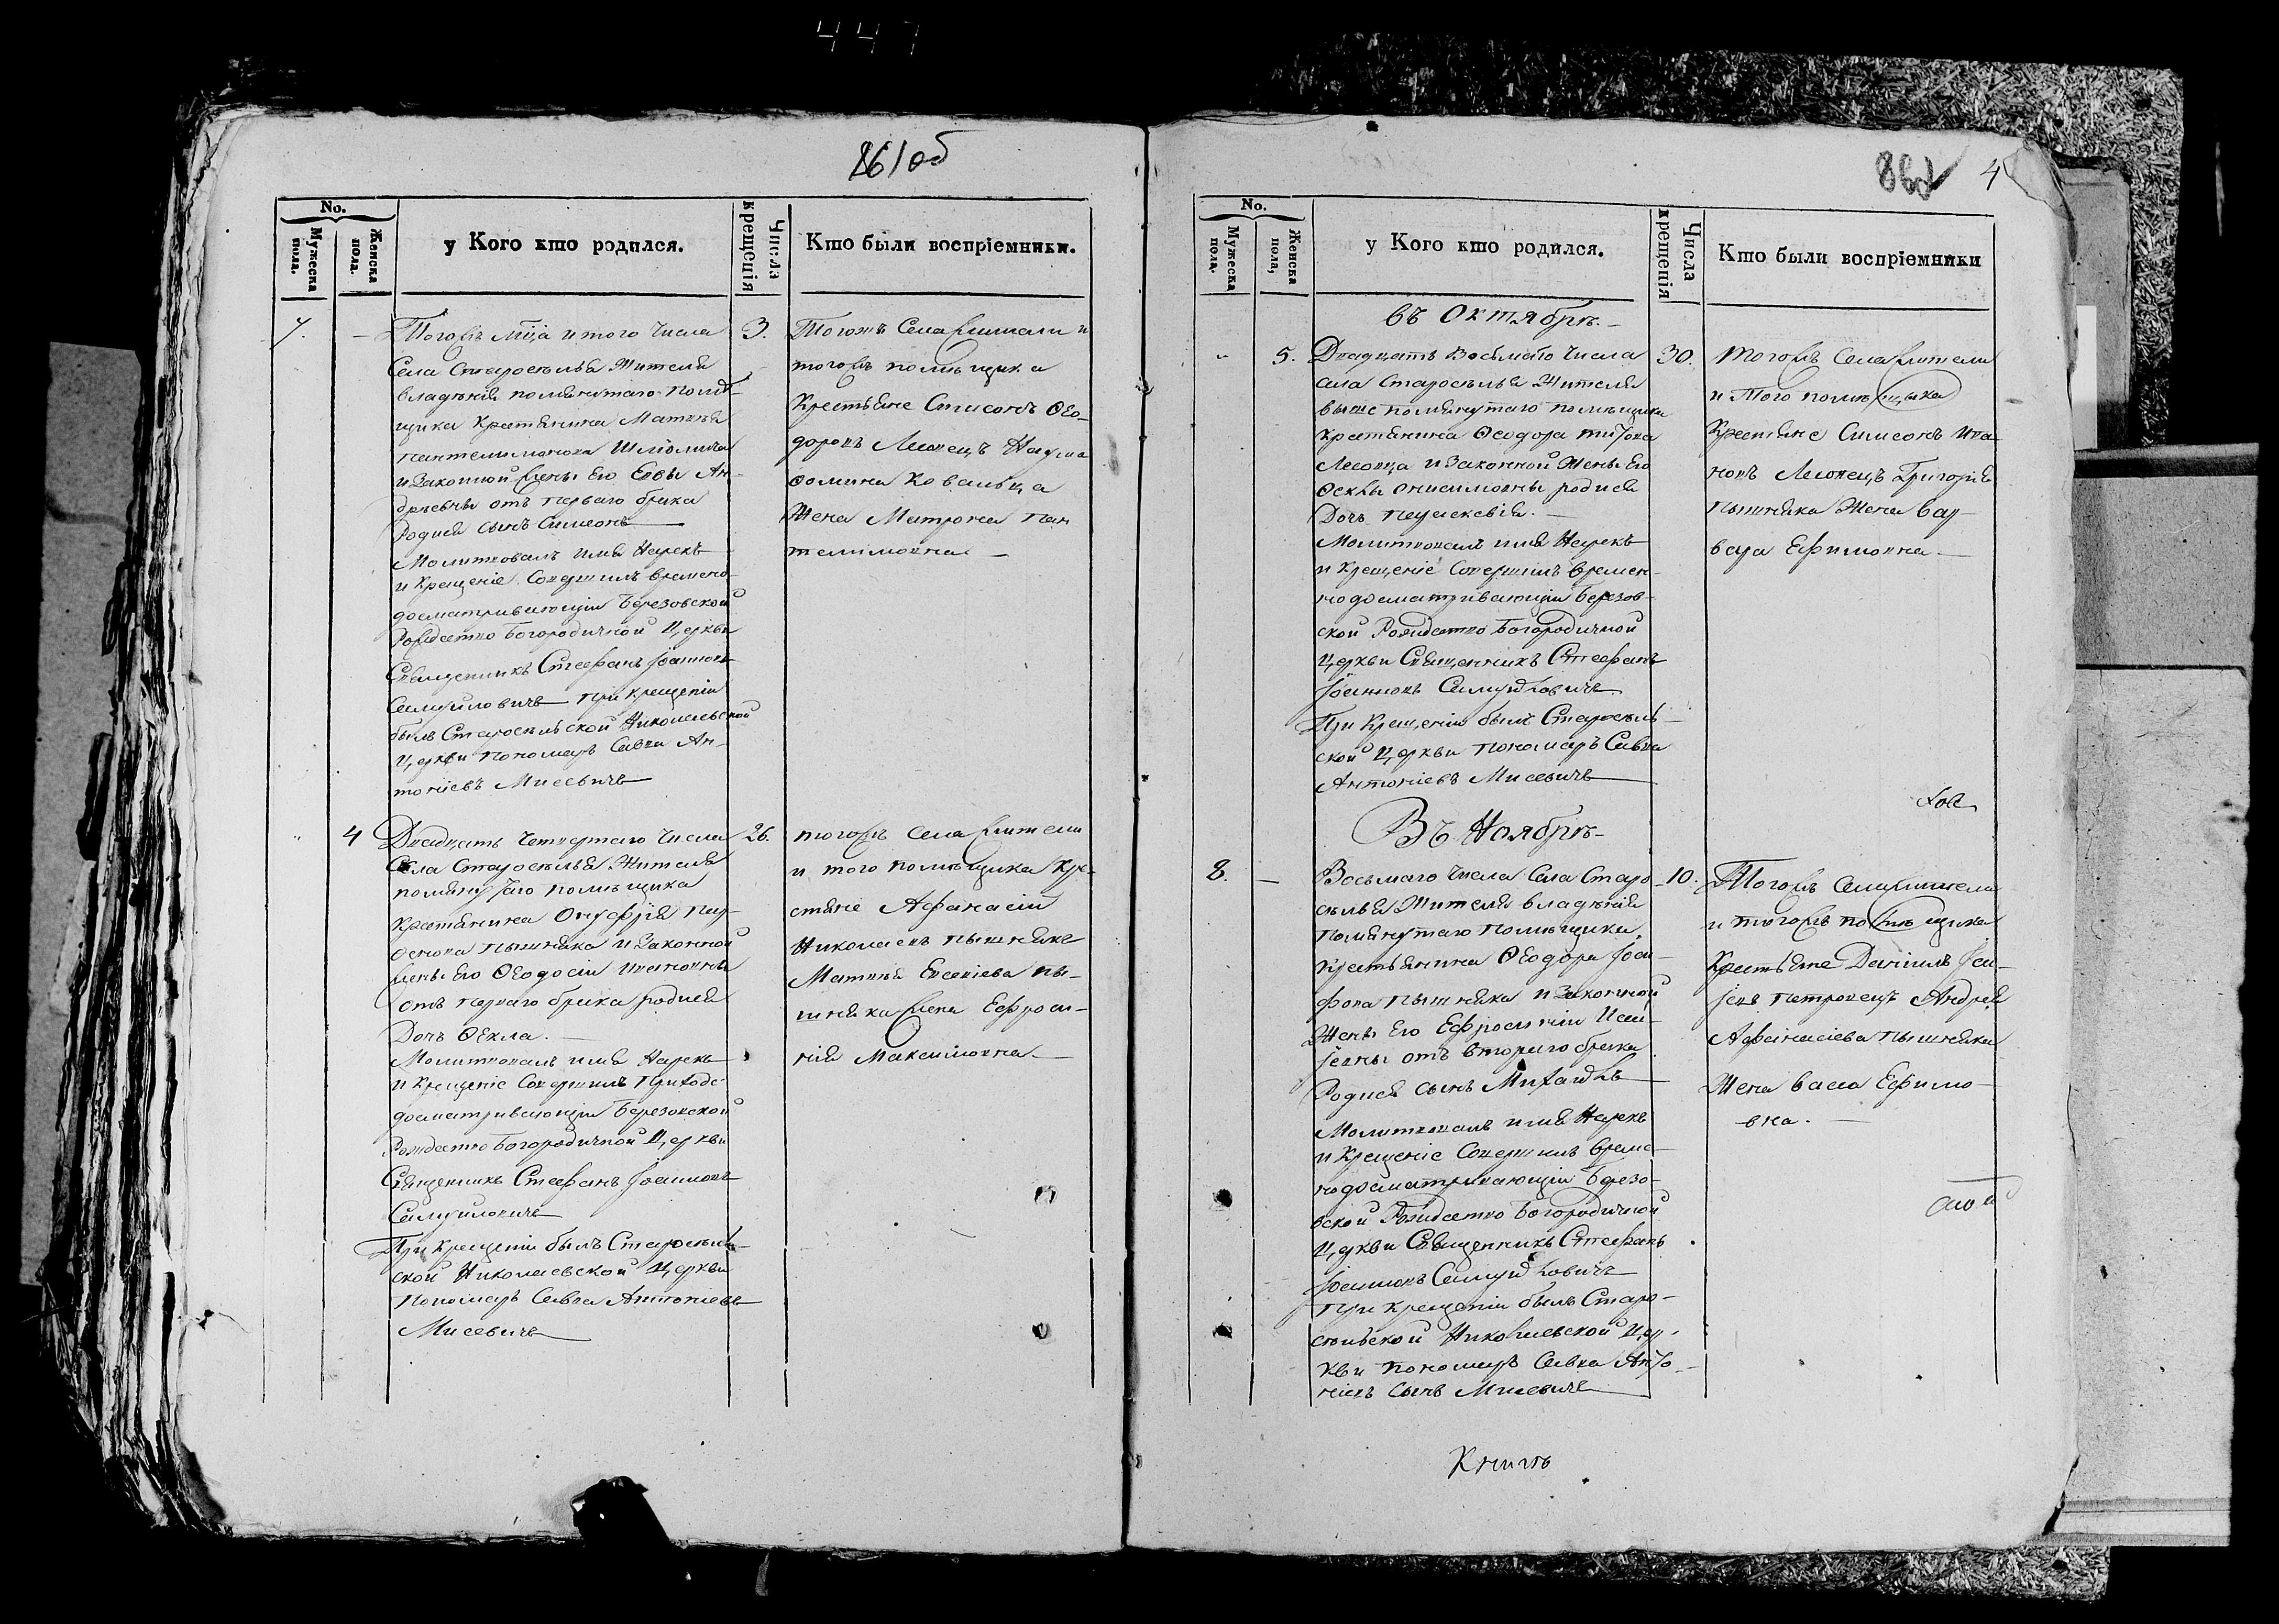 447
861об
No.
Мужеска пола.
Женска пола.
у Кого кто родился.
Числа крещенія
Кто были воспріемники.
7.
Тогожъ мѣца и того Числа
Села Старосѣлья Жителя
владѣнія помянутаго помѣ-
щика Крестьянина Матвѣя
Пантелимонова
и Законной жены Его Евы Ан-
дреевны отъ перваго брака
Родися сынъ Симеонъ
Молитвовалъ имя Нарекъ
и Крещеніе Совершилъ времено
досматривающій Березовской
Рождество Богородичной Церкви
Священникъ Стефанъ Іоанновъ
Самуиловичъ при крещеніи
былъ Старосѣльской Николаевской
Церкви пономарь Савва Ан-
тоніевъ Мисевичъ
3.
Тогожъ Села жители и
тогожъ помѣщика
Крестьяне Симеонъ Ѳео-
доровъ Лесовецъ Наума
Ѳомина Ковальца
Жена Матрона Пан
телимовна
4
Двадцать Четвертаго Числа
Села Старосѣлья Жителя
помянутаго помѣщика
Крестьянина Онуфрія
Пышняка и Законной
жены Его Ѳеодосіи Ивановны
отъ перваго брака родися
Дочь Ѳекла.
Молитвовалъ имя Нарекъ
и Крещеніе Совершилъ Приходо
досматривающій Березовской
Рождество Богородичной Церкви
Священникъ Стефанъ Іоанновъ
Самуиловичъ
При Крещеніи былъ Старосѣль-
ской Николаевской Церкви
Пономарь Савва Антоніевъ
Мисевичъ
26.
тогожъ Села жители
и того помѣщика Кре-
стьяне Афанасій
Николаевъ Пышнякъ
Матвѣя Евсевіева Пы-
шняка жена Ефроси-
нія Максимовна
862 4
No.
Мужеска пола,
Женска пола,
у Кого кто родился.
Числа крещенія
Кто были воспріемники
въ Октябрѣ.
5.
Двадцать Восьмаго Числа
села Старосѣлья Жителя
выше помянутаго помѣщика
крестьянина Ѳеодора Титова
Лесовца и Законной Жены Его
Ѳеклы Онисимовны родися
Дочь Параскевія.
Молитвовалъ имя Нарекъ
и Крещеніе Совершилъ времен-
но досматривающій Березов-
ской Рождество Богородичной
Церкви Священникъ Стефанъ
Іоанновъ Самуйловичъ
При Крещеніи былъ Старосѣль-
ской Церкви пономарь Савва
Антоніевъ Мисевичъ
30.
Тогожъ Села жители
и Того помѣщика
Крестьяне Симеонъ Ива-
новъ Лесовецъ Григорія
Пышняка Жена Вар-
вара Ефимовна
Въ Ноябрѣ
8.
Восьмаго Числа Села Старо-
сѣлья Жителя владѣнія
помянутаго помѣщика
Крестьянина Ѳеодора
Пышняка и Законной
Жены Его Ефросиніи Исаі-
евны отъ втораго брака
Родися сынъ Михаилъ
Молитвовалъ имя Нарекъ
и Крещеніе Совершилъ време-
но досматривающій Березо-
вской Рождество Богородичной
Церкви Священникъ Стефанъ
Іоанновъ Самуйловичъ
при крещеніи былъ Старо-
сѣльской Николаевской Цер-
кви пономарь Савва Анто-
ніевъ сынъ Мисевичъ
10.
Тогожъ Села жители
и тогожъ помѣщика
Крестьяне Даніилъ Іса-
іевъ Петровецъ Андрея
Афанасіева Пышняка
Жена Васса Ефимо-
вна.